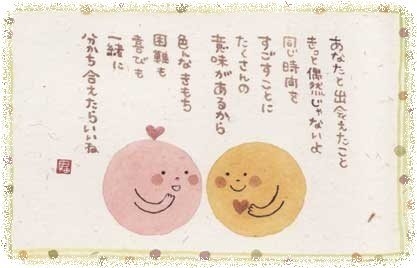 あなたと出会えたこと
きっと偶然じゃないよ
同じ時間を
すごすことに
たくさんの
意味があるから
色んなきもち
困難も
喜びも
一緒に
分かち合えたらいいね